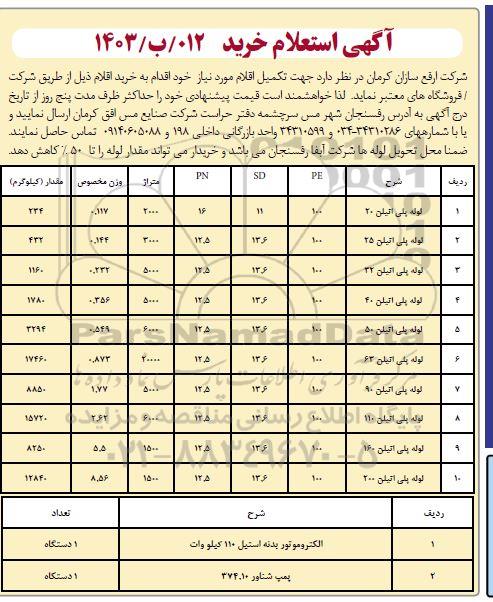 آگهی استعلام خرید ۰۱۲/ب/۱۴۰۳
شرکت ارفع سازان کرمان در نظر دارد جهت تکمیل اقلام مورد نیاز خود اقدام به خرید اقلام ذیل از طریق شرکت
/ فروشگاه های معتبر نماید. لذا خواهشمند است قیمت پیشنهادی خود را حداکثر ظرف مدت پنج روز از تاریخ
درج آگهی به آدرس رفسنجان شهر مس سرچشمه دفتر حراست شرکت صنایع مس افق کرمان ارسال نمایید و
یا با شماره‎های ۳۴۳۱۰۲۸۶-۰۳۴ و ۳۴۳۱۰۵۹۹ واحد بازرگانی داخلی ۱۹۸ و ۰۹۱۴۰۶۰۵۰۸۸ تماس حاصل نمایند.
ضمنا محل تحویل لوله ها شرکت آبفا رفسنجان می باشد و خریدار می تواند مقدار لوله را تا ۵۰٪ کاهش دهد.
ردیف شرح PE SD PN متراژ وزن مخصوص مقدار (کیلوگرم)
۱ لوله پلی اتیلن ۲۰ ۱۰۰ ۱۱ ۱۶ ۲۰۰۰ ۰.۱۱۷ ۲۳۴
۲ لوله پلی اتیلن ۲۵ ۱۰۰ ۱۳.۶ ۱۲.۵ ۳۰۰۰ ۰.۱۴۴ ۴۳۲
۳ لوله پلی اتیلن ۳۲ ۱۰۰ ۱۳.۶ ۱۲.۵ ۵۰۰۰ ۰.۲۳۲ ۱۱۶۰
۴ لوله پلی اتیلن ۴۰ ۱۰۰ ۱۳.۶ ۱۲.۵ ۵۰۰۰ ۰.۳۵۶ ۱۷۸۰
۵ لوله پلی اتیلن ۵۰ ۱۰۰ ۱۳.۶ ۱۲.۵ ۶۰۰۰ ۰.۵۴۹ ۳۲۹۴
۶ لوله پلی اتیلن ۶۳ ۱۰۰ ۱۳.۶ ۱۲.۵ ۲۰۰۰۰ ۰.۸۷۳ ۱۷۴۶۰
۷ لوله پلی اتیلن ۹۰ ۱۰۰ ۱۳.۶ ۱۲.۵ ۵۰۰۰ ۱.۷۷ ۸۸۵۰
۸ لوله پلی اتیلن ۱۱۰ ۱۰۰ ۱۳.۶ ۱۲.۵ ۶۰۰۰ ۲.۶۲ ۱۵۷۲۰
۹ لوله پلی اتیلن ۱۶۰ ۱۰۰ ۱۳.۶ ۱۲.۵ ۱۵۰۰ ۵.۵ ۸۲۵۰
۱۰ لوله پلی اتیلن ۲۰۰ ۱۰۰ ۱۳.۶ ۱۲.۵ ۱۵۰۰ ۸.۵۶ ۱۲۸۴۰
ParsNamadData
پایگاه اطلاع رسانی مناقصه و مزایده
۰۲۱-۸۸۳۴۹۶۷۰-۵
ردیف شرح تعداد
۱ الکتروموتور بدنه استیل ۱۱۰ کیلو وات ۱ دستگاه
۲ پمپ شناور ۳۷۴.۱۰ ۱ دستگاه